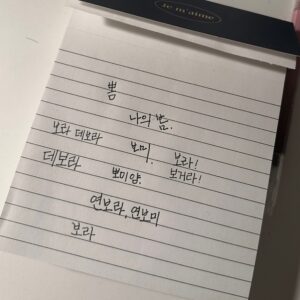 Je m'aime
뽐
나의 봄.
보라 데보라
보미.
보라!
보거라!
데보라
뽀미양.
연보라, 연보미
보라